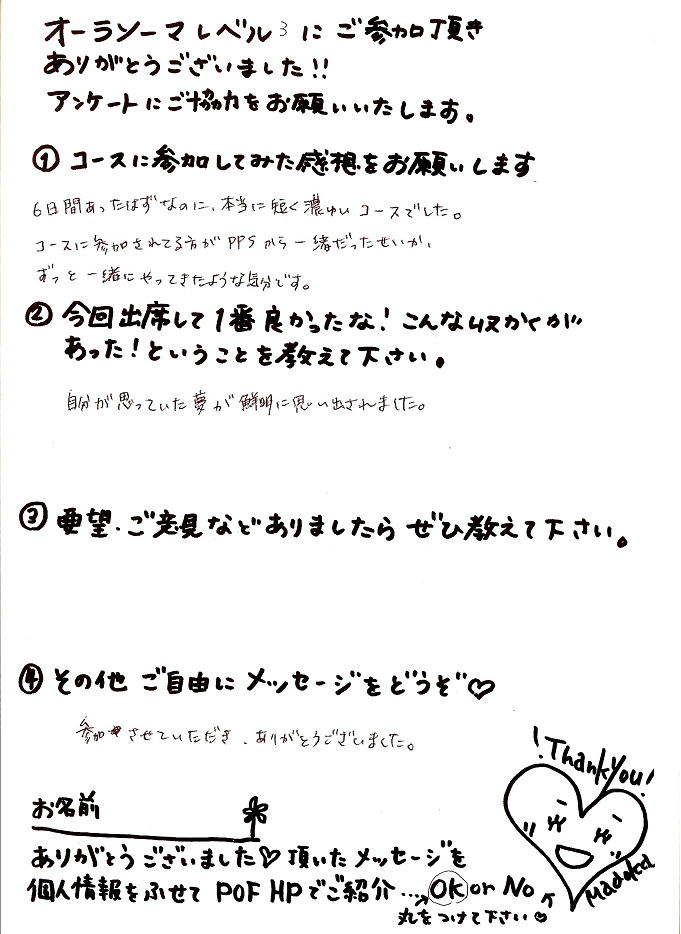 オーラソーマレベル3にご参加頂き
ありがとうございました!!
アンケートにご協力をお願いいたします。
① コースに参加してみた感想をお願いします
6日間あったはずなのに、本当に短く濃ゆいコースでした。
コースに参加されてる方がPPSから一緒だったせいか、
ずっと一緒にやってきたような気分です。
② 今回出席して1番良かったな!こんな収かくが
あった!ということを教えて下さい。
自分が思っていた夢が鮮明に思い出されました。
③ 要望、ご意見などありましたらぜひ教えて下さい。
④ その他 ご自由にメッセージをどうぞ♡
参加させていただき、ありがとうございました。
!Thank you!
お名前
ありがとうございました♡頂いたメッセージを
個人情報をふせて POF HPでご紹介…→OK or No
丸をつけて下さい♡
Madoka